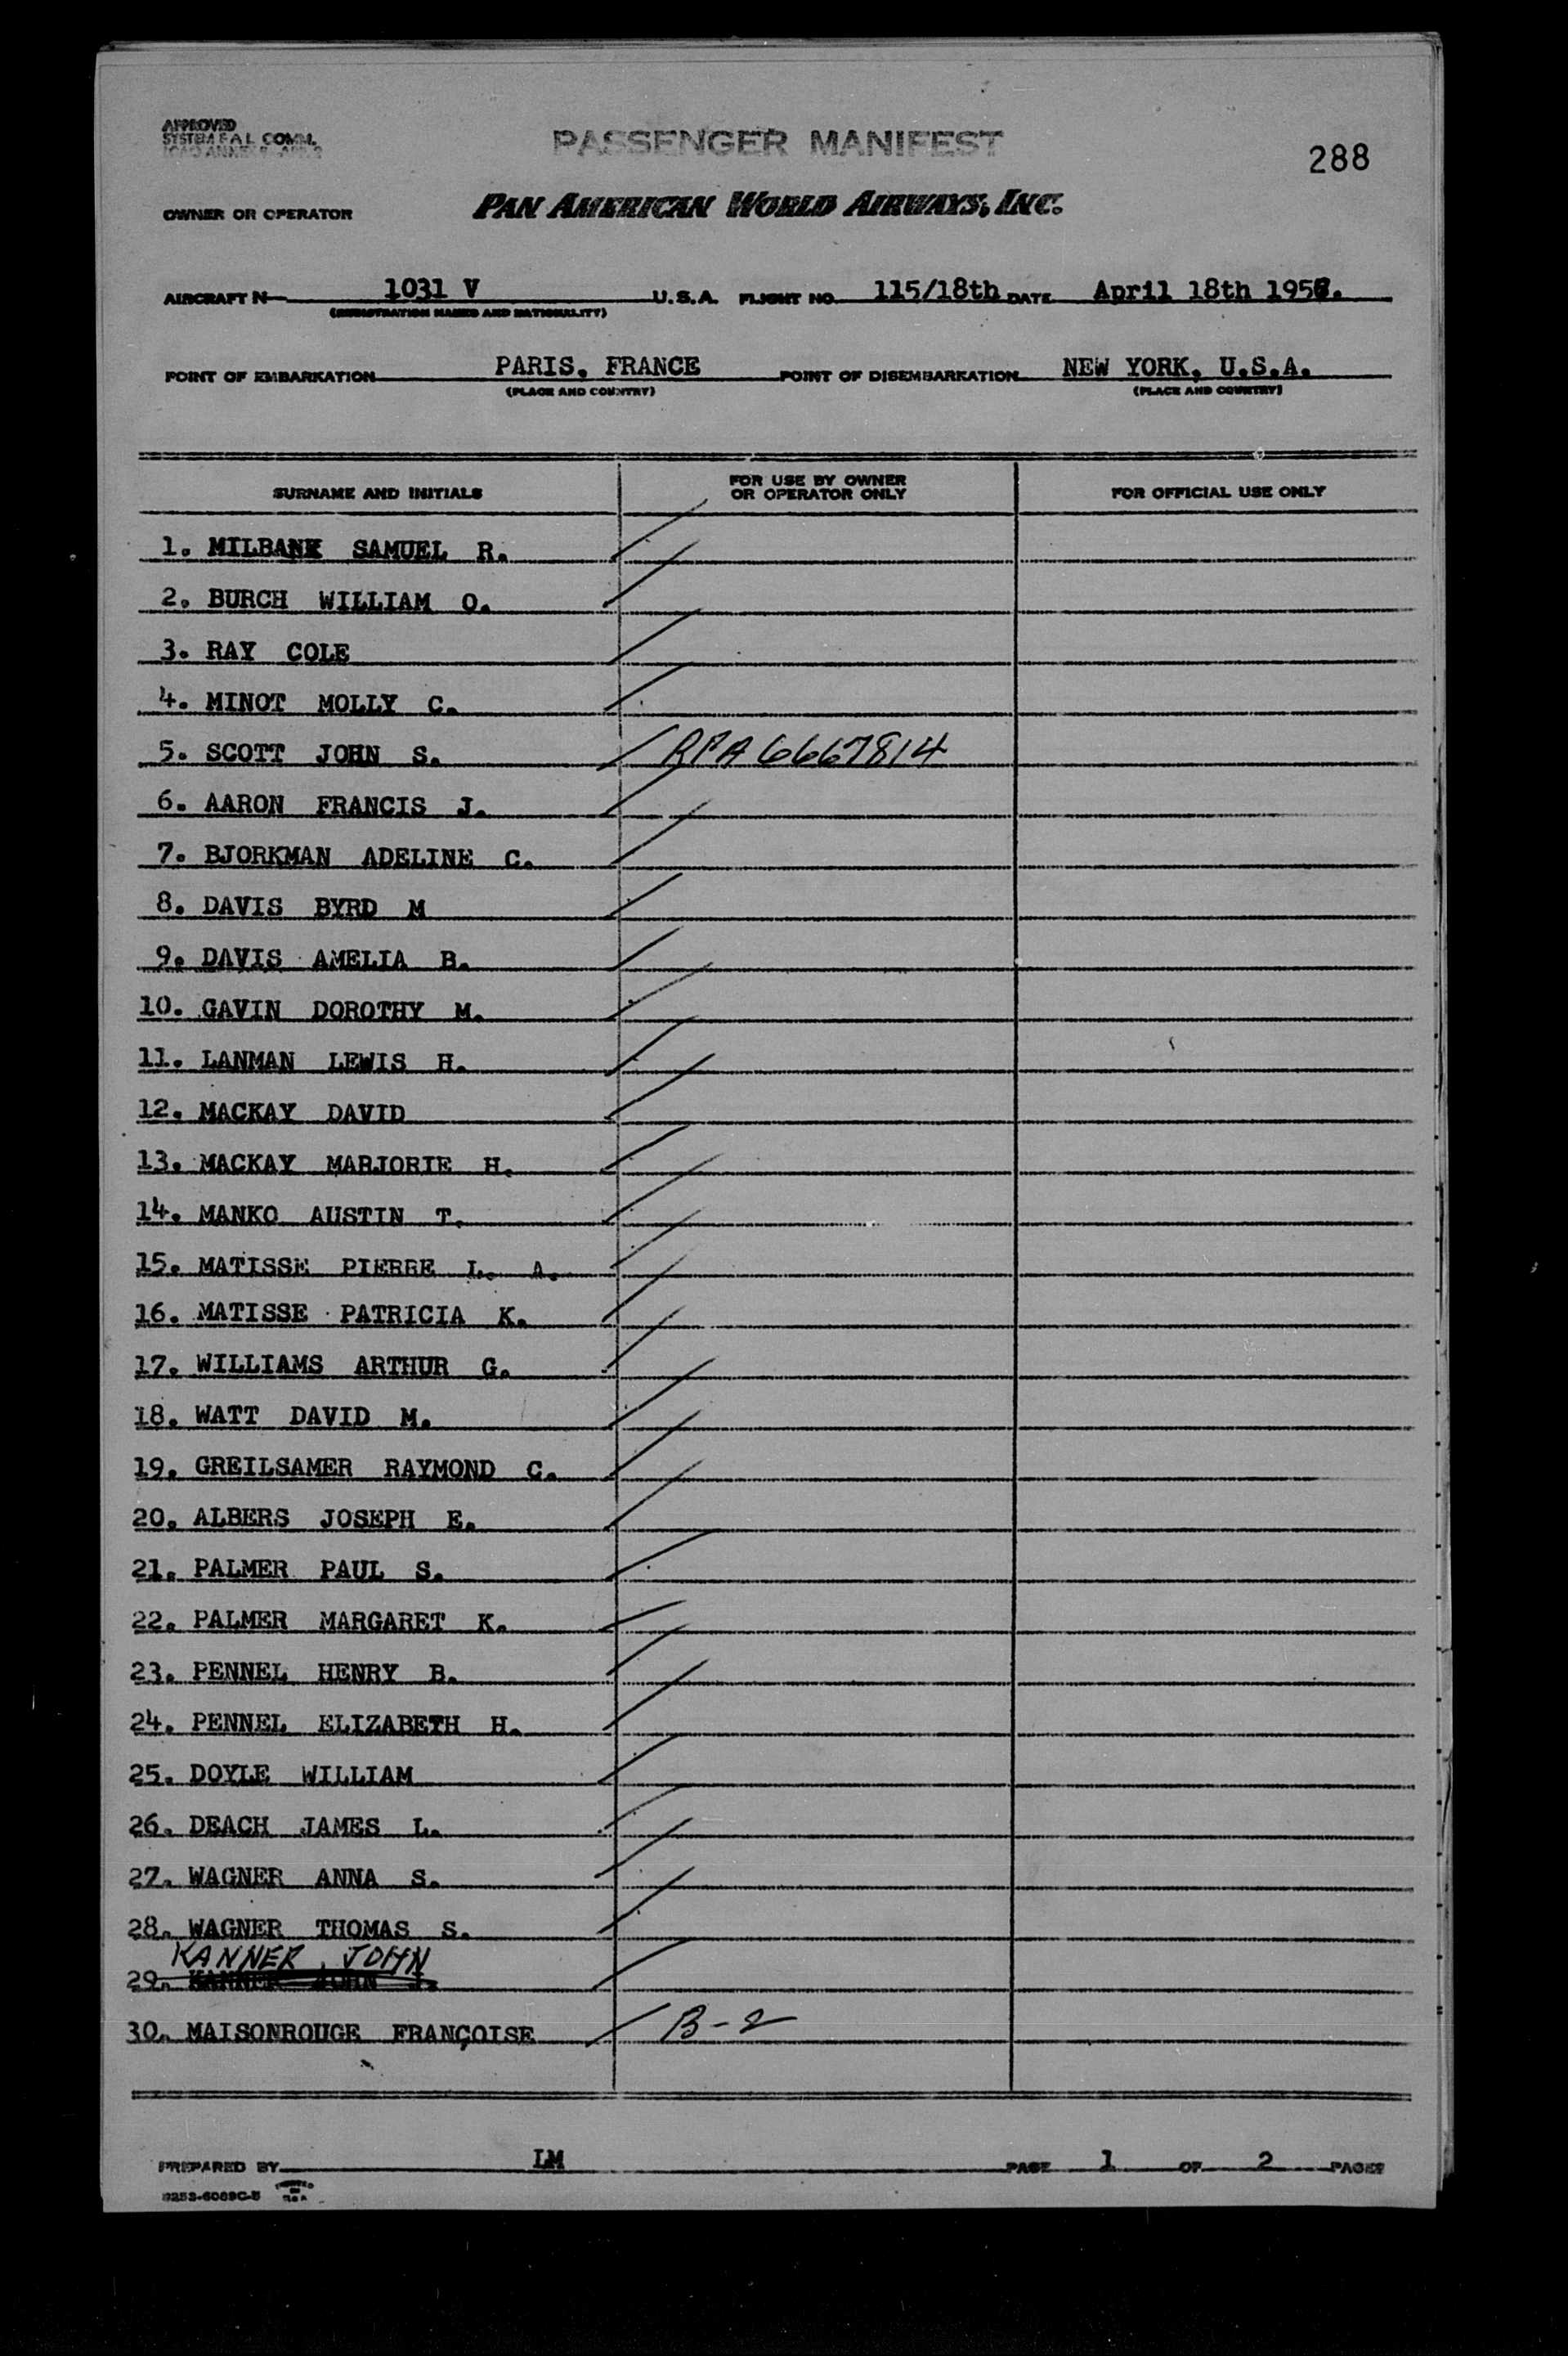 APPROVED
SYSTEM F A L COMM.
PASSENGER MANIFEST
288
OWNER OR OPERATOR
PAN AMERICAN WORLD AIRWAYS, INC.
AIRCRAFT N 1031 V U.S.A. FLIGHT NO. 115/18th DATE April 18th 195
(REGISTRATION MARKS AND NATIONALITY)
POINT OF EMBARKATION PARIS, FRANCE POINT OF DISEMBARKATION NEW YORK, U.S.A.
(PLACE AND COUNTRY) (PLACE AND COUNTRY)
SURNAME AND INITIALS FOR USE BY OWNER OR OPERATOR ONLY FOR OFFICIAL USE ONLY
1. MILBANK SAMUEL R.
2. BURCH WILLIAM O.
3. RAY COLE
4. MINOT MOLLY C.
5. SCOTT JOHN S. RPA 6667814
6. AARON FRANCIS J.
7. BJORKMAN ADELINE C.
8. DAVIS BYRD M
9. DAVIS AMELIA B.
10. GAVIN DOROTHY M.
11. LANMAN LEWIS H.
12. MACKAY DAVID
13. MACKAY MARJORIE H.
14. MANKO AUSTIN T.
15. MATISSE PIERRE L. A.
16. MATISSE PATRICIA K.
17. WILLIAMS ARTHUR G.
18. WATT DAVID M.
19. GREILSAMER RAYMOND C.
20. ALBERS JOSEPH E.
21. PALMER PAUL S.
22. PALMER MARGARET K.
23. PENNEL HENRY B.
24. PENNEL ELIZABETH H.
25. DOYLE WILLIAM
26. DEACH JAMES L.
27. WAGNER ANNA S.
28. WAGNER THOMAS S.
KANNER JOHN
29. KANNER JOHN J.
30. MAISONROUGE FRANÇOISE B-2
PREPARED BY LM PAGE 1 OF 2 PAGES